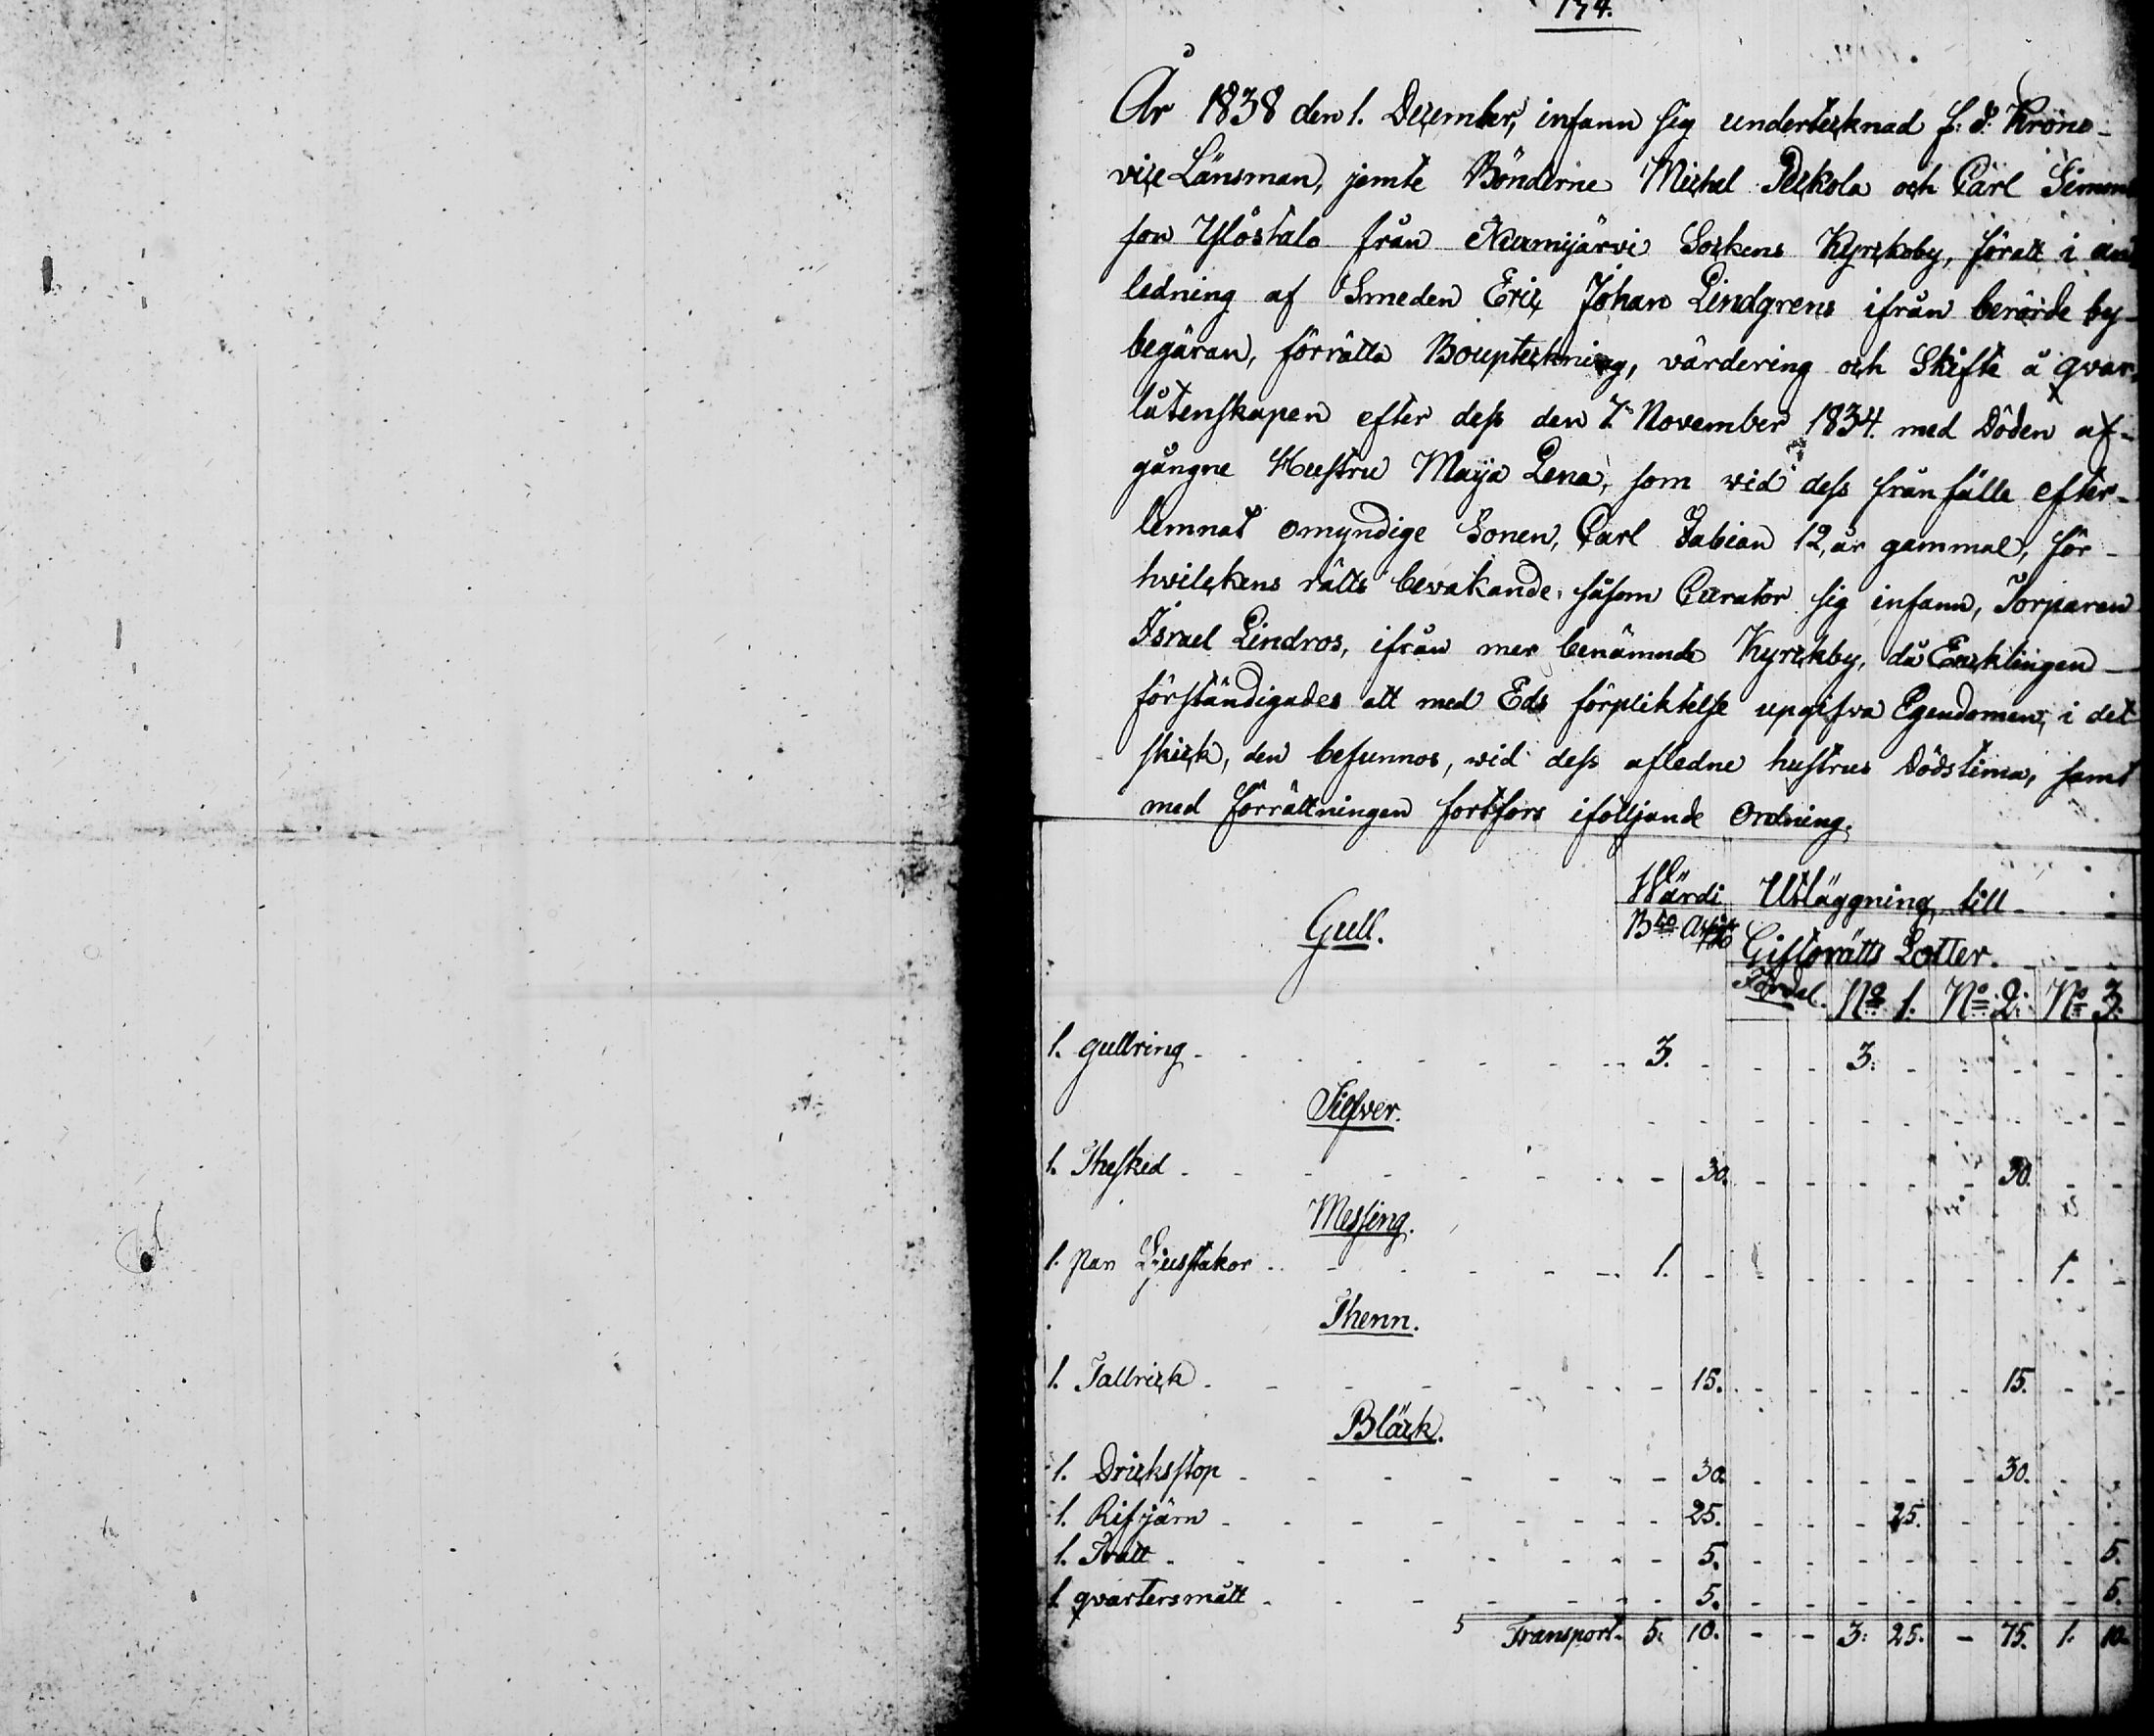 174.
År 1838 den 1. December, infann sig undertecknad f: d: Krono-
vice Länsman, jemte Bönderne Michel Peckola och Carl Simons
son Ylöstalo från Nurmijärvi Sockens Kyrckoby, föratt i an
ledning af Smeden Eric Johan Lindgrens ifrån berörde by-
begäran, förrätta Bouptekning, värdering och Skifte å qvar-
låtenskapen efter dess den 7. November 1834. med Döden af-
gångne Hustru Maija Lena, som wid dess frånfälle efter-
lemnat omyndige Sonen, Carl Fabian 12, år gammal, för-
hvilckens rätts bevakande, såsom Curator sig infann, Torparen
Israel Lindros, ifrån mer benämnde Kyrckby, då Encklingen
förständigades att med Eds förpliktelse upgifva Egendomen, i det
skick, den befunnos, wid dess afledne hustrus Dödstima, samt
med förrättningen fortfors ifölljande Ordning.
Wärdi Utläggning till
Gull. Bco Assig
Giftorätts Lotter.
Fördel. No 1. No 2. No 3.
1. gullring - 3. - 3:
Silfver.
1. Thesked - 30. - 30.
Messing.
1. par Ljusstakor - 1. - 1.
Thenn.
1. Tallrick - 15. - 15.
Bläck.
1. Dricksstop - 30. - 30.
1. Rifjärn - 25. - 25.
1. Tratt - 5. - 5.
1. qvartersmått - 5. - 5.
Transport. 5: 10. - - 3: 25. - 75. 1. 10.